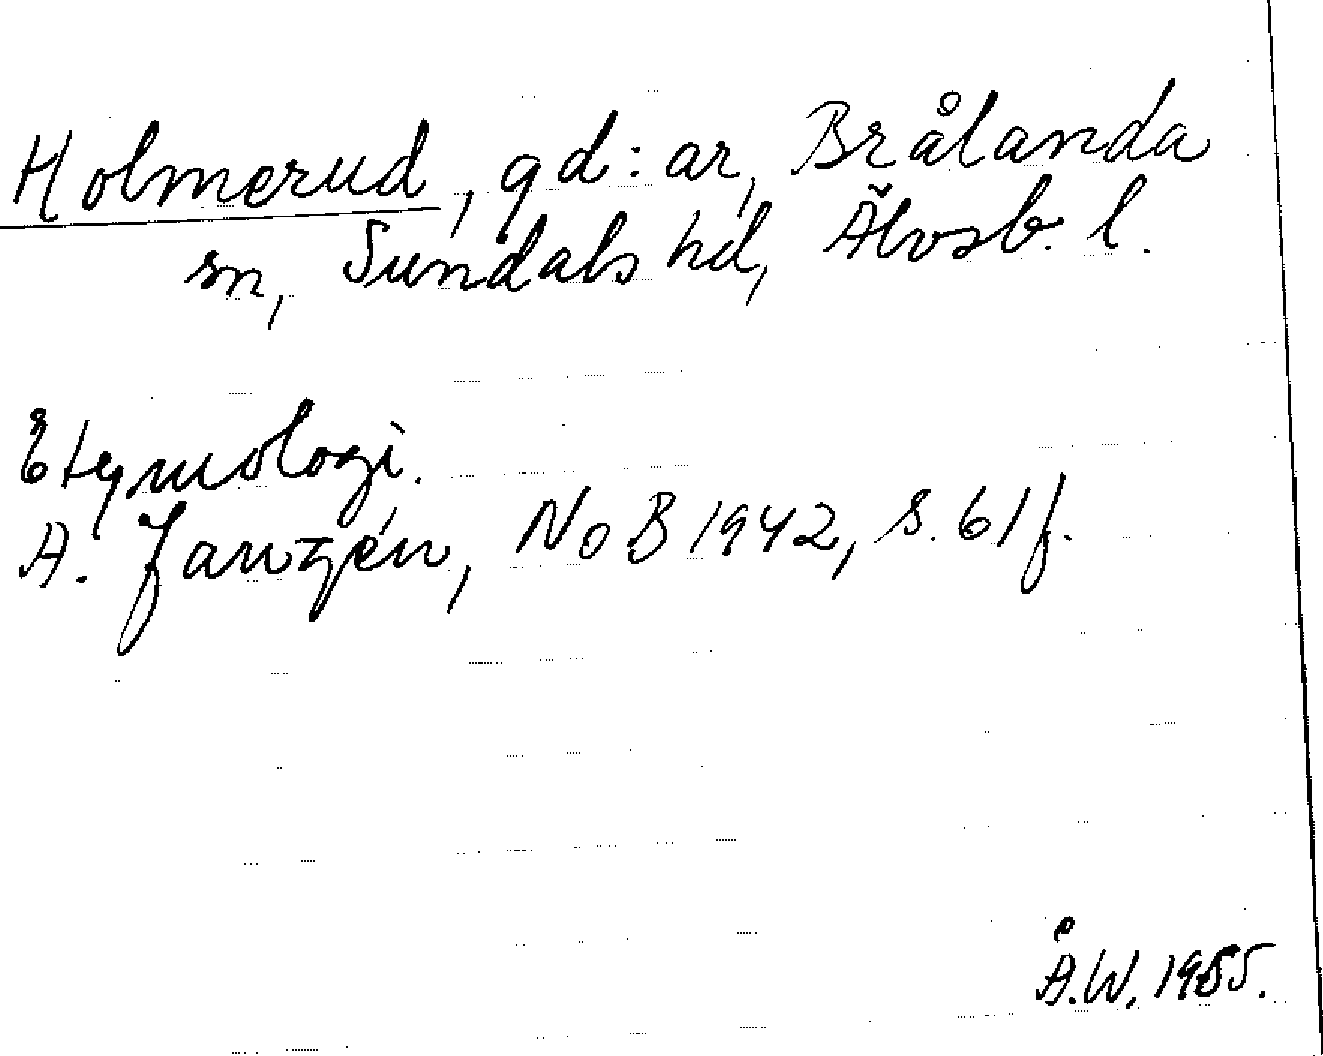 Holmerud, gd:ar, Brålanda
sn, Sundals hd, Älvsb. l.
Etymologi.
A. Janzén, NoB 1942, s. 61 f.
Å.W. 1955.